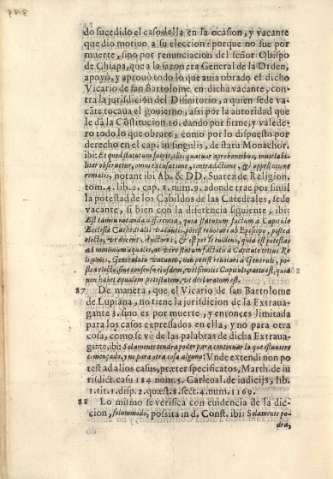 do sucedido el caso della en la ocasion, y vacante
que dio motiuo a su eleccion: porque no fue por
muerte, sino por renunciacion del señor Obispo
de Chiapa, que a la sazon era General de la Orden,
apoyò, y aprouò todo lo que auia obrado el dicho
Vicario de san Bartolome, en dicha vacante, con-
tra la jurisdicion del Difinitorio, a quien sede va-
cãte tocaua el gouierno; assi por la autoridad que
le dà la Cõstitucion 10. dando por firme, y valede-
ro todo lo que obrare; como por lo dispuesto por
derecho en el cap. in singulis, de statu Monachor.
ibi: Et quod statutum fuerit, illis
obseruetur, omni excusatione, contradictione, & appellatione
remotis, notant ibi Ab. & DD. Suarez de Religion.
tom. 4. lib. 2. cap. 2. num. 9. adonde trae por simil
la potestad de los Cabildos de las Catedrales, sede
vacante, si bien con la diferencia siguiente, ibi:
Est tamen notanda differentia, quia statutum factum a Capitulo
Ecclesiæ Cathedralis vacantis, potest retractari ab Episcopo, postea
electo, vt docent Auctores; & est
Generalatu vacante, non potest retractari a Generali, pos-
tea electo, sine consensu eiusdem, vel similis Capituli
non habet aqualem potestatem, vt declaratum est.
87 De manera, que el Vicario de san Bartolome
de Lupiana, no tiene la jurisdicion de la Extraua-
gante 3. sino es por muerte, y entonces limitada
para los casos expressados en ella, y no para otra
cosa, como se vè de las palabras de dicha Extraua-
gante, ibi: Solamente tendra poder para continuar lo que estuuiere
començado, y no para otra cosa alguna: Vnde extendi non po
test ad alios casus, præter specificatos, Marth. de iu
risdict. casu 184 num 5. Carleual. de iudicijs, lib.
1. tit. 1. disp. 2. quæst. 8. sect. 4. num. 1169.
88 Lo mismo se verifica con euidencia de la dic-
cion, solummodo, possita in d. Const. ibi: Solamente po-
drà,